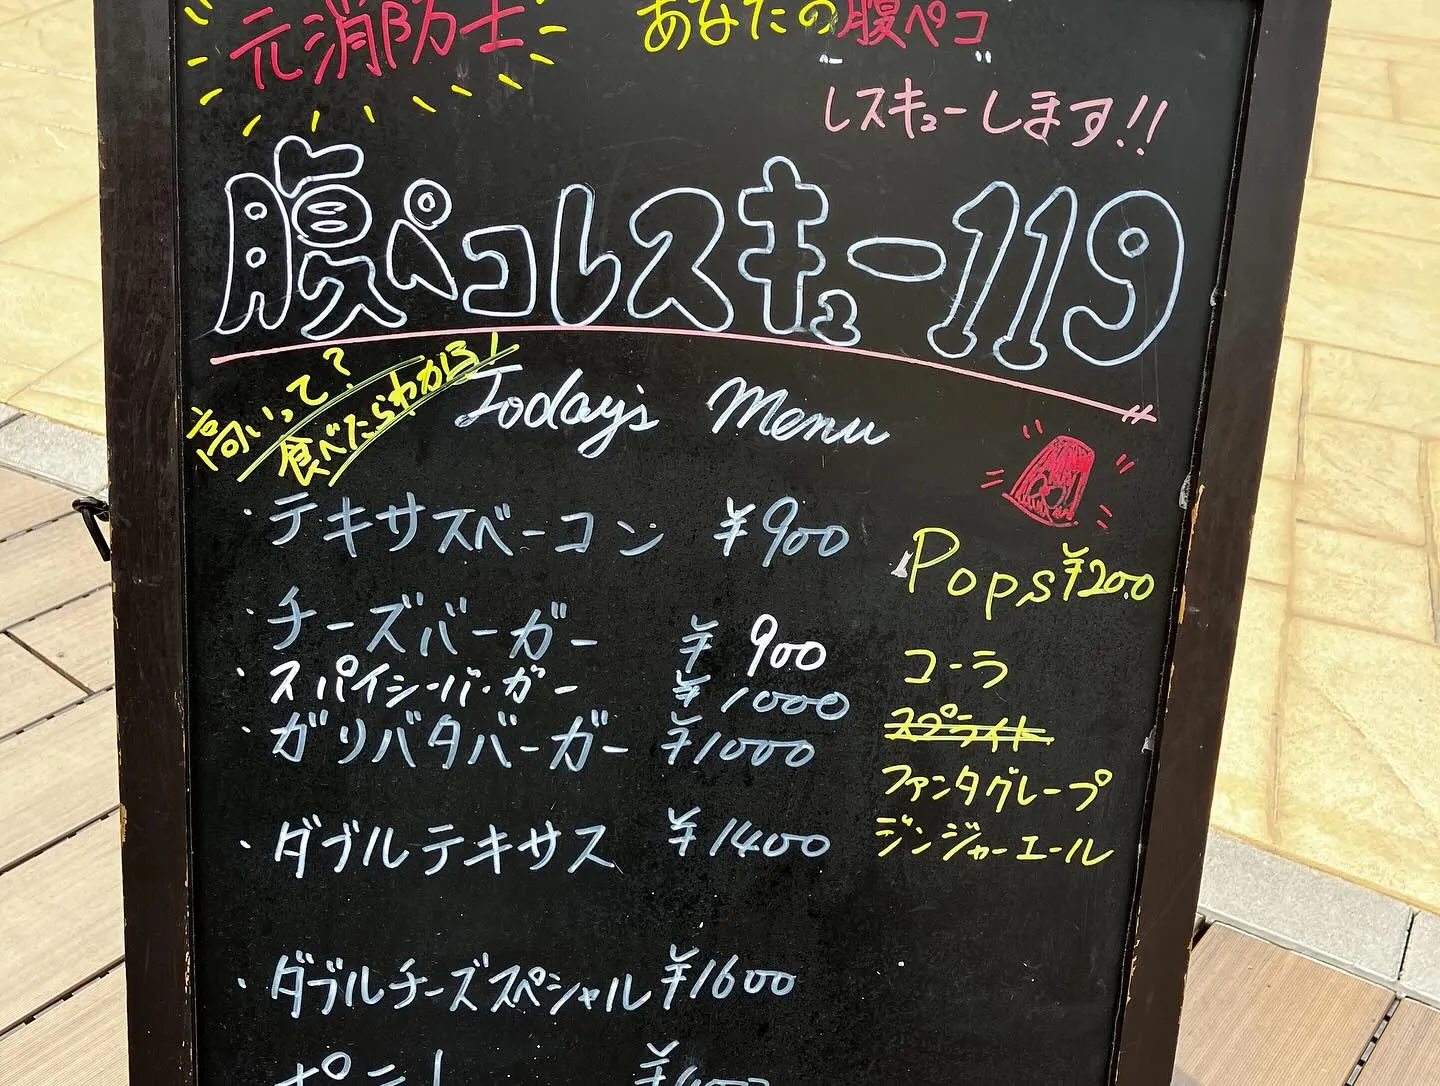 元消防士 あなたの腹ペコ
レスキューします!!
腹ペコレスキュー119
高いって?
食べたらわかる!
Today's Menu
・テキサスベーコン ¥900
・チーズバーガー ¥900
・スパイシーバーガー ¥1000
・ガリバタバーガー ¥1000
・ダブルテキサス ¥1400
・ダブルチーズスペシャル ¥1600
ポテト
Pops ¥200
コーラ
スプライト
ファンタグレープ
ジンジャーエール